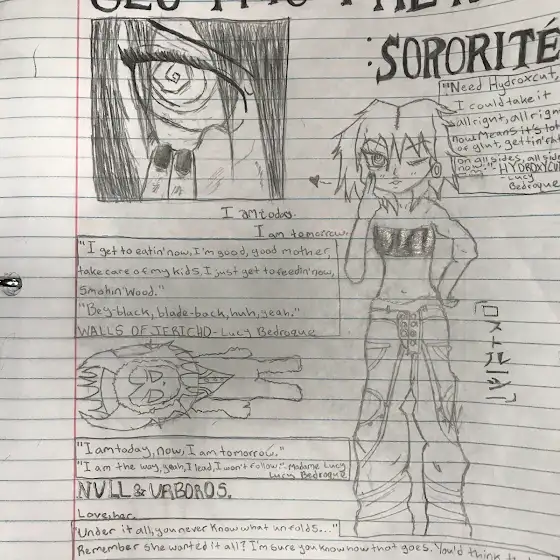 : SORORITÉ
"Need Hydroxycut,
I could take it
all right, all righ
now. Means it's t
of glut, gettin'
on all sides, all sid
now." - HYDROXYCU
-Lucy
Bedroque
I am today.
I am tomorrow.
"I get to eatin' now, I'm good, good mother,
take care of my kids, I just get to feedin' now,
Smokin' Wood."
"Bey-black, blade-back, huh, yeah."
WALLS OF JERICHO - Lucy Bedroque
"I am today, now, I am tomorrow."
"I am the way, yeah, I lead, I won't follow." - Madame Lucy
Lucy Bedroque
NVLL & VRBOROS.
Love, her.
"Under it all, you never know what unfolds..."
Remember she wanted it all? I'm sure you know how that goes. You'd think t